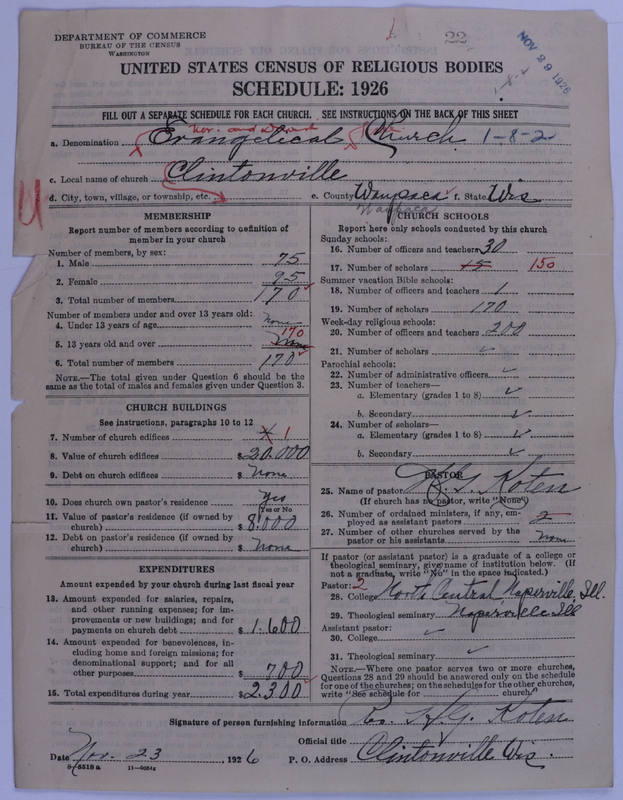 DEPARTMENT OF COMMERCE
BUREAU OF THE CENSUS
WASHINGTON
22
NOV 29 1926
UNITED STATES CENSUS OF RELIGIOUS BODIES
SCHEDULE: 1926
FILL OUT A SEPARATE SCHEDULE FOR EACH CHURCH. SEE INSTRUCTIONS ON THE BACK OF THIS SHEET
a. Denomination Evangelical Church 1-8-2
c. Local name of church Clintonville
d. City, town, village, or township, etc. e. County Waupaca f. State Wis
Waupaca
MEMBERSHIP
Report number of members according to definition of member in your church
Number of members, by sex:
1. Male 75
2. Female 95
3. Total number of members 170
Number of members under and over 13 years old:
4. Under 13 years of age None
5. 13 years old and over None 170
6. Total number of members 170
NOTE.—The total given under Question 6 should be the same as the total of males and females given under Question 3.
CHURCH BUILDINGS
See instructions, paragraphs 10 to 12
7. Number of church edifices 1
8. Value of church edifices $ 20.000
9. Debt on church edifices $ None
10. Does church own pastor's residence Yes
Yes or No
11. Value of pastor's residence (if owned by church) $ 8.000
12. Debt on pastor's residence (if owned by church) $ None
EXPENDITURES
Amount expended by your church during last fiscal year
13. Amount expended for salaries, repairs, and other running expenses; for improvements or new buildings; and for payments on church debt $ 1.600
14. Amount expended for benevolences, including home and foreign missions; for denominational support; and for all other purposes $ 700
15. Total expenditures during year $ 2.300
CHURCH SCHOOLS
Report here only schools conducted by this church
Sunday schools:
16. Number of officers and teachers 30
17. Number of scholars 150
Summer vacation Bible schools:
18. Number of officers and teachers 1
19. Number of scholars 170
Week-day religious schools:
20. Number of officers and teachers 200
21. Number of scholars
Parochial schools:
22. Number of administrative officers
23. Number of teachers—
a. Elementary (grades 1 to 8)
b. Secondary
24. Number of scholars—
a. Elementary (grades 1 to 8)
b. Secondary
PASTOR
25. Name of pastor H. G. Koten
(If church has no pastor, write "None")
26. Number of ordained ministers, if any, employed as assistant pastors 2
27. Number of other churches served by the pastor or his assistants None
If pastor (or assistant pastor) is a graduate of a college or theological seminary, give name of institution below. (If not a graduate, write "No" in the space indicated.)
Pastor: 2
28. College North Central Naperville, Ill.
29. Theological seminary Naperville Ill
Assistant pastor:
30. College
31. Theological seminary
NOTE.—Where one pastor serves two or more churches, Questions 28 and 29 should be answered only on the schedule for one of the churches; on the schedules for the other churches, write "See schedule for church."
Signature of person furnishing information Rev. H. G. Koten
Official title
Date Nov. 23, 1926 P. O. Address Clintonville Wis.
8-5518a 11-9684a